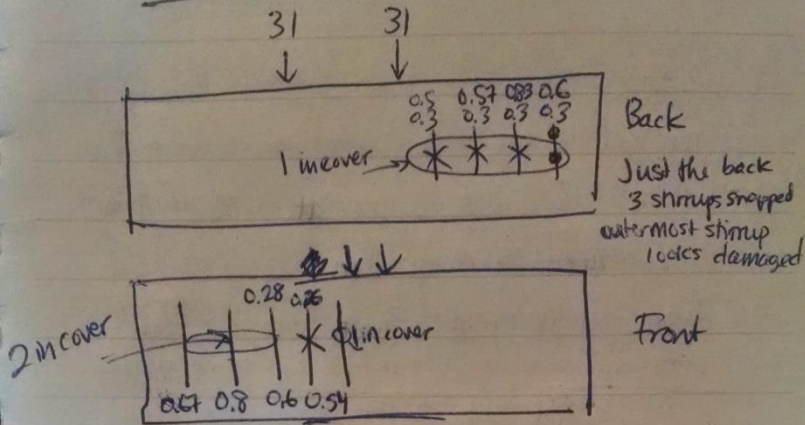 31 31
0.5 0.57 0.83 0.6
0.3 0.3 0.3 0.3
Back
1 in cover
Just the back
3 stirrups snapped
outermost stirrup
looks damaged
0.28 0.26
2 in cover
1 in cover
Front
0.67 0.8 0.6 0.54